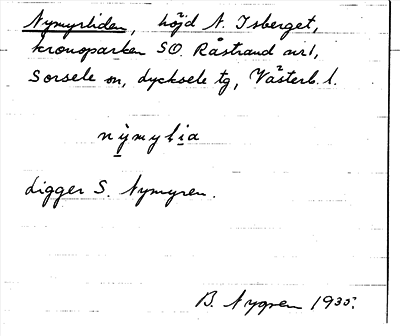 Nymyrliden, höjd N. Isberget,
kronoparken SO. Råstrand nr 1,
Sorsele sn, Lycksele tg, Västerb. l.
nỳmylia
Ligger S. Nymyren.
B. Nygren 1935.